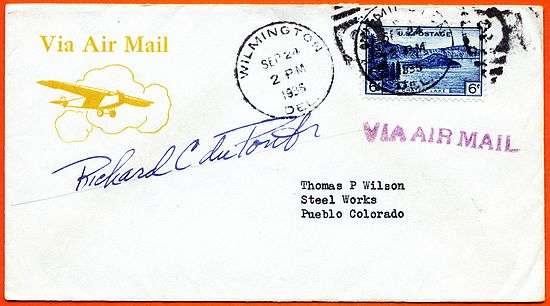 Via Air Mail
WILMINGTON
SEP 24
2 PM
1935
DEL.
U.S. POSTAGE
6¢ 6¢
VIA AIR MAIL
Richard C du Pont Jr
Thomas P Wilson
Steel Works
Pueblo Colorado